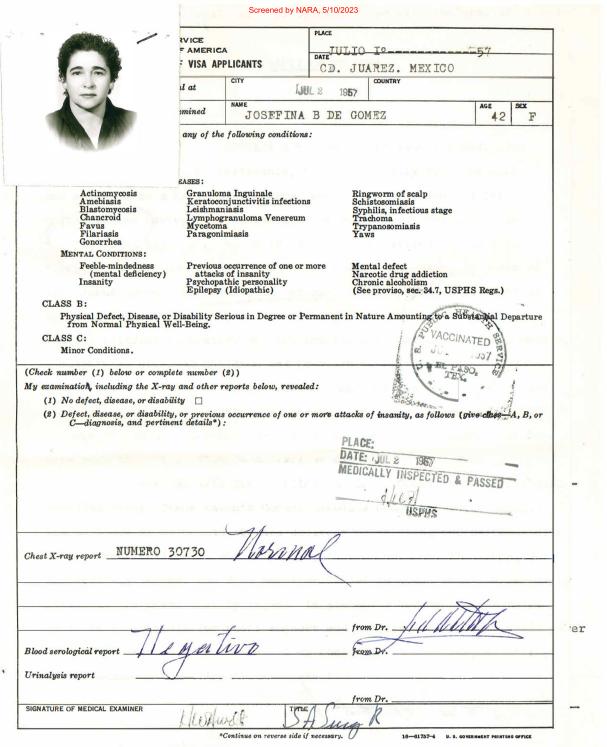 Screened by NARA, 5/10/2023
RVICE
F AMERICA
F VISA APPLICANTS
PLACE
JULIO Iº------------57
DATE
CD. JUAREZ. MEXICO
l at
CITY
JUL 2 1957
COUNTRY
mined
NAME
JOSEFINA B DE GOMEZ
AGE
42
SEX
F
any of the following conditions:
EASES:
Actinomycosis
Amebiasis
Blastomycosis
Chancroid
Favus
Filariasis
Gonorrhea
Granuloma Inguinale
Keratoconjunctivitis infections
Leishmaniasis
Lymphogranuloma Venereum
Mycetoma
Paragonimiasis
Ringworm of scalp
Schistosomiasis
Syphilis, infectious stage
Trachoma
Trypanosomiasis
Yaws
MENTAL CONDITIONS:
Feeble-mindedness
(mental deficiency)
Insanity
Previous occurrence of one or more
attacks of insanity
Psychopathic personality
Epilepsy (Idiopathic)
Mental defect
Narcotic drug addiction
Chronic alcoholism
(See proviso, sec. 34.7, USPHS Regs.)
CLASS B:
Physical Defect, Disease, or Disability Serious in Degree or Permanent in Nature Amounting to a Substantial Departure
from Normal Physical Well-Being.
CLASS C:
Minor Conditions.
U. S. PUBLIC HEALTH SERVICE
VACCINATED
JUL 1957
EL PASO,
TEX.
(Check number (1) below or complete number (2))
My examination, including the X-ray and other reports below, revealed:
(1) No defect, disease, or disability ☐
(2) Defect, disease, or disability, or previous occurrence of one or more attacks of insanity, as follows (give class—A, B, or
C—diagnosis, and pertinent details*):
PLACE:
DATE: JUL 2 1957
MEDICALLY INSPECTED & PASSED
USPHS
Chest X-ray report NUMERO 30730 Normal
from Dr.
er
Blood serological report Negativo
from Dr.
Urinalysis report
from Dr.
SIGNATURE OF MEDICAL EXAMINER
TITLE
*Continue on reverse side if necessary.
16—61757-4 U. S. GOVERNMENT PRINTING OFFICE